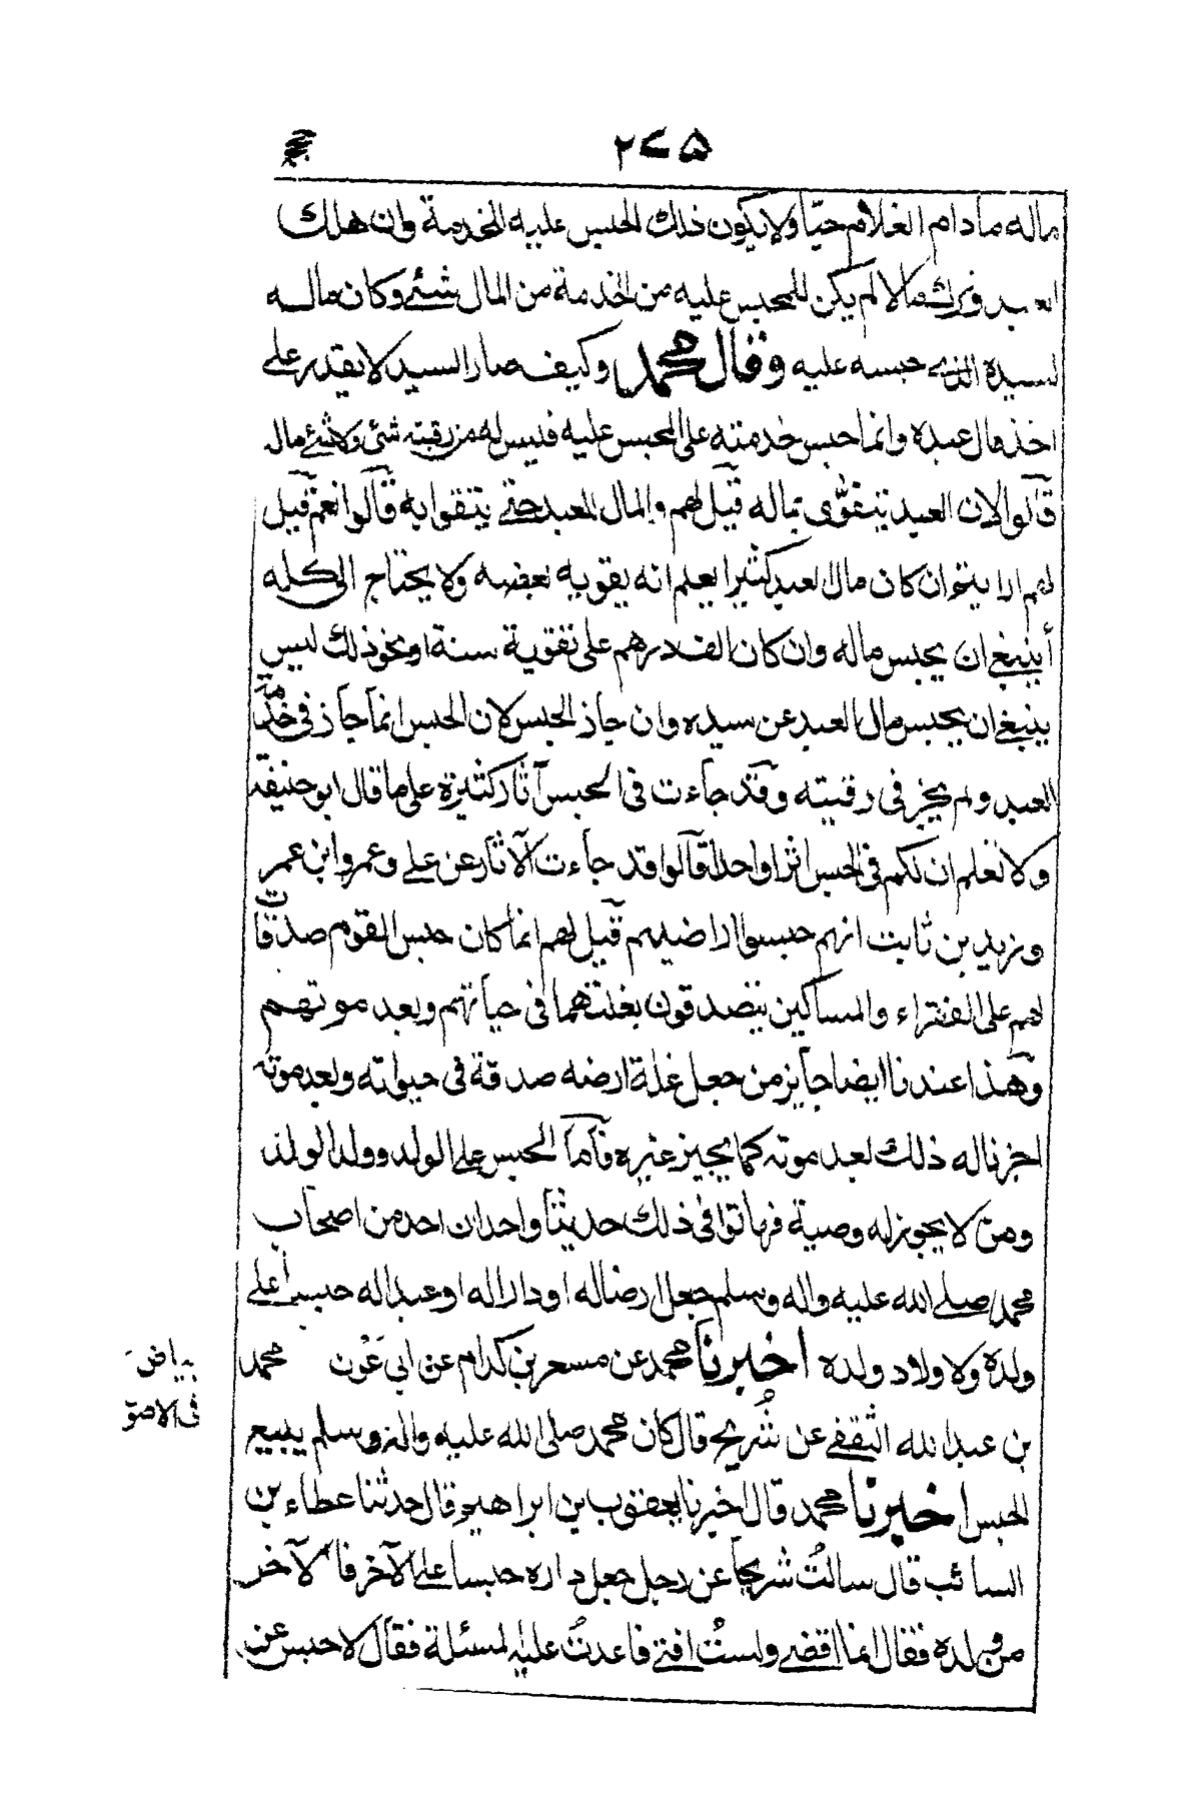 ۲۷۵
ماله مادام الغلام حيّا ولا يكون ذلك الحبس عليه الخدمة وان هلك
العبد وترك مالا لم يكن للمحبس عليه من الخدمة من المال شئ وكان ماله
لسيده الذي حبسه عليه وقال محمد وكيف صار السيد لا يقدر على
اخذ مال عبده وانما حبس خدمته على المحبس عليه فليس له من رقبته شئ ولا شئ ماله
قالوا لان العبد يتقوّى بماله قيل لهم والمال للعبد حتى يتقوا به قالوا نعم قيل
لهم ارايتم ان كان مال العبد كثيرا يعلم انه يقويه بعضه ولا يحتاج الى كله
أينبغي ان يحبس ماله وان كان الف درهم على تقوية سنة او نحو ذلك ليس
ينبغي ان يحبس مال العبد عن سيده وان جاز الحبس لان الحبس انما جاز في خدمة
العبد ولم يجز في رقبته وقد جاءت في الحبس آثار كثيرة على ما قال ابو حنيفة
ولا نعلم ان لكم في الحبس اثرا واحدا قالوا قد جاءت الآثار عن على وعمر وابن عمر
وزيد بن ثابت انهم حبسوا اراضيهم قيل لهم انما كان حبس القوم صدقات
لهم على الفقراء والمساكين يتصدقون بغلتهما في حياتهم وبعد موتهم
وهذا عندنا ايضا جايز من جعل غلة ارضه صدقة في حيوته وبعد موته
اجزنا له ذلك بعد موته كما يجيز غيره فأما الحبس على الولد وولد الولد
ومن لا يجوز له وصية فهاتوا في ذلك حديثا واحدا ان احد من اصحاب
محمد صلى الله عليه واله وسلم جعل ارضا له او دارا له او عبدا له حبسا على
ولده ولاولاد ولده اخبرنا محمد عن مسعر بن كدام عن ابى عَوْن محمد
بياض
فى الاصل
بن عبد الله الثقفي عن شُريح قال كان محمد صلى الله عليه واله وسلم يبيع
الحبس اخبرنا محمد قال اخبرنا يعقوب بن ابراهيم قال حدثنا عطاء بن
السائب قال سالتُ شريحا عن رجل جعل داره حبسا على الآخر فالآخر
من ولده فقال انما اقضي ولستُ افتي فاعدتُ عليه المسئلة فقال لا حبس عن